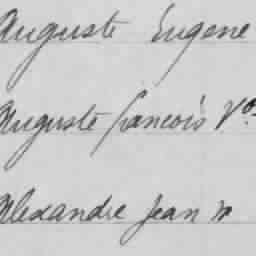 Auguste Eugene
Auguste francois Vor
Alexandre Jean m